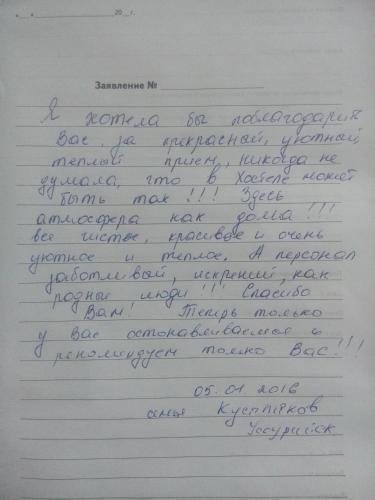 « » 20 г.
Заявление №
Я хотела бы поблагодарить
Вас за прекрасный, уютный,
теплый прием, никогда не
думала, что в Хостеле может
быть так!!! Здесь
атмосфера как дома!!!
все чистое, красивое и очень
уютное и теплое. А персонал
заботливый, искрений, как
родные люди!!! Спасибо
Вам! Теперь только
у Вас останавливаемся и
рекомендуем только Вас!!!
05.01.2016
семья
Уссурийск